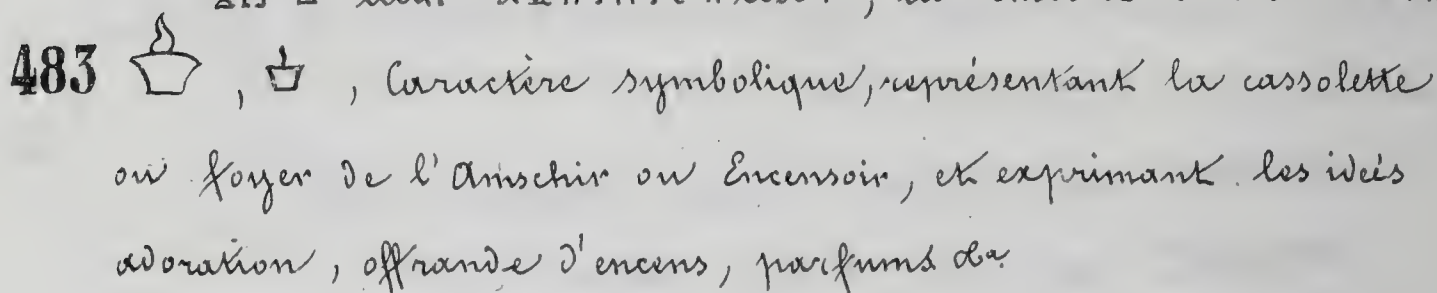 483 , , Caractère symbolique, représentant la cassolette
ou foyer de l'Amschir ou Encensoir, et exprimant les idées
adoration, offrande d'encens, parfums &a